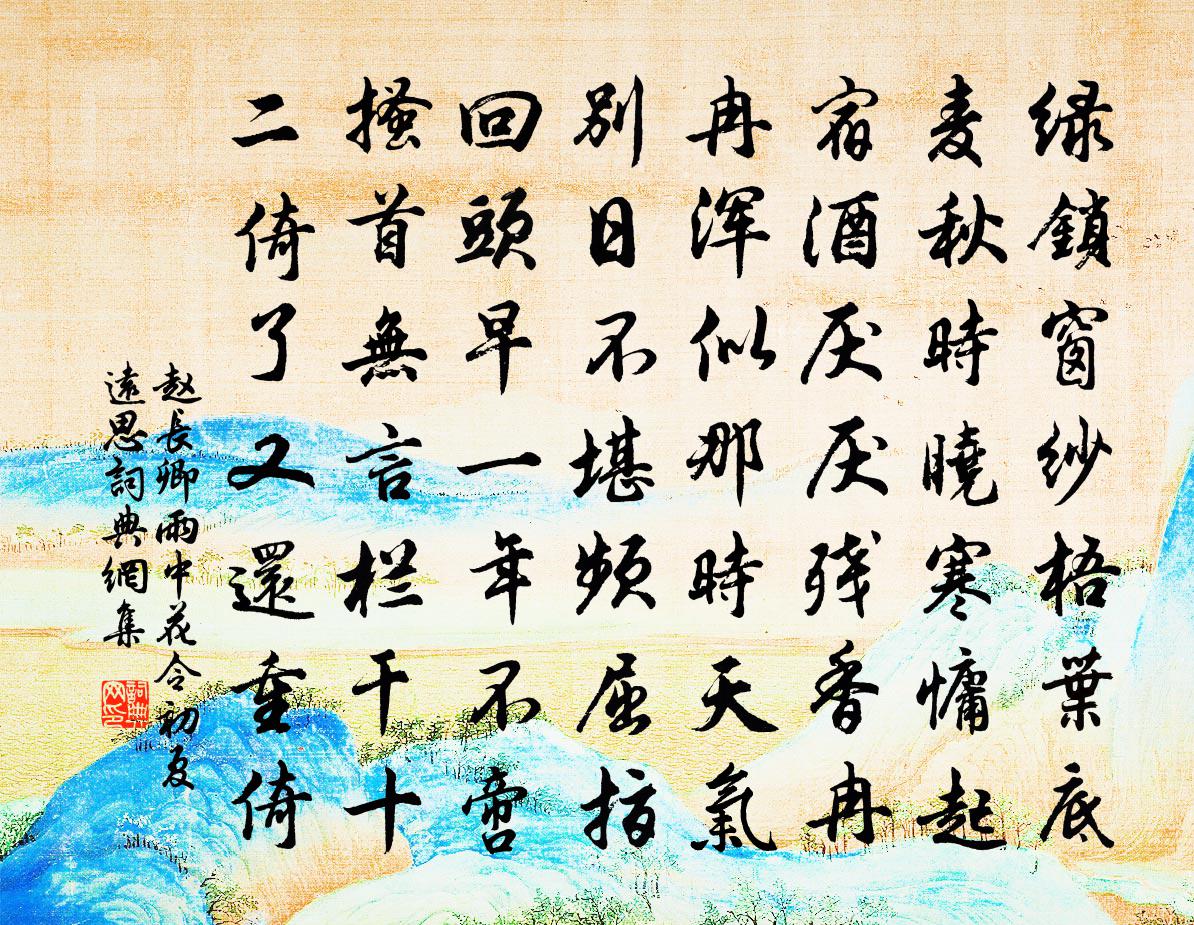 绿鎖窗紗梧葉底
麦秋時曉寒慵起
宿酒厌厌残香冉
冉浑似那時天氣
别日不堪频屈指
回頭早一年不啻
搔首無言栏干十
二倚了又還重倚
赵長卿雨中花令初夏
遠思詞典網集
詞典网印